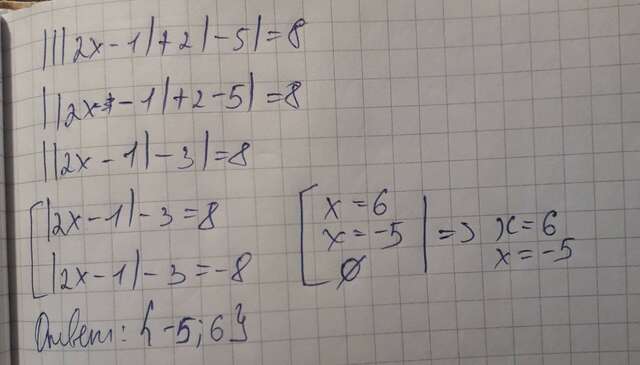 |||2x-1|+2|-5|=8
||2x-1|+2-5|=8
||2x-1|-3|=8
|2x-1|-3=8
|2x-1|-3=-8
x=6
x=-5
∅
=> x=6
x=-5
Ответ: {-5;6}